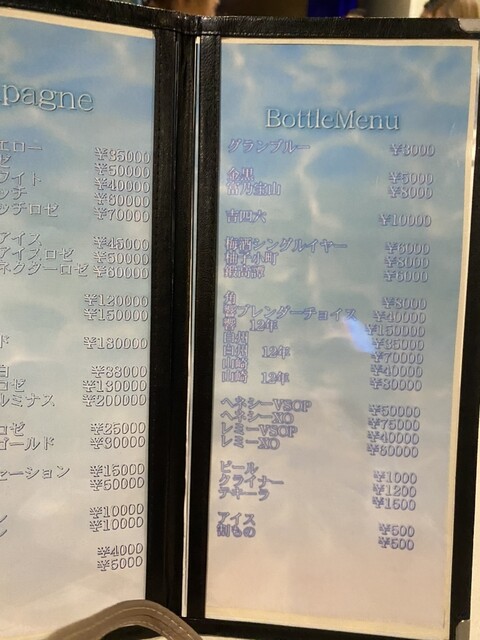 pagne
エロー ¥35000
ゼ ¥50000
ライト ¥40000
ッチ ¥60000
ッチロゼ ¥70000
アイス ¥45000
アイスロゼ ¥50000
ネクターロゼ ¥60000
¥120000
¥150000
ド ¥180000
白 ¥88000
ロゼ ¥130000
ルミナス ¥200000
ロゼ ¥25000
ゴールド ¥30000
セーション ¥15000
¥50000
ン ¥10000
¥10000
¥4000
¥5000
BottleMenu
グランブルー ¥3000
金黒 ¥5000
富乃宝山 ¥8000
吉四六 ¥10000
梅酒シングルイヤー ¥6000
柚子小町 ¥8000
鍛高譚 ¥6000
角 ¥8000
響ブレンダーチョイス ¥40000
響 12年 ¥150000
白州 ¥35000
白州 12年 ¥70000
山崎 ¥40000
山崎 12年 ¥80000
ヘネシーVSOP ¥50000
ヘネシーXO ¥75000
レミーVSOP ¥40000
レミーXO ¥60000
ビール ¥1000
クライナー ¥1200
テキーラ ¥1500
アイス ¥500
割もの ¥500